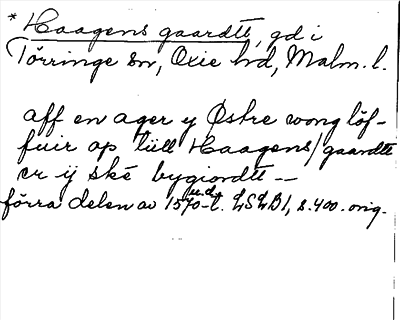 * Haagens gaardtt, gd i
Törringe sn, Oxie hd, Malm. l.
aff en ager y Østre wong löf-
fuir op till Haagens/gaardtt
er ÿ ske bygiordtt —
förra delen av 1570-t. u.d. LSLB1, s. 400. orig.